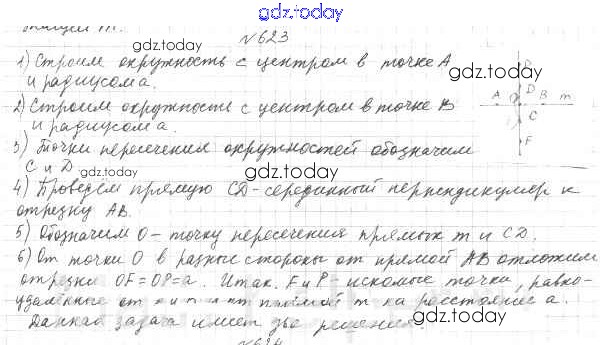 gdz.today
№623
gdz.today
1) Строим окружность с центром в точке А
и радиусом а.
gdz.today
2) Строим окружность с центром в точке В
и радиусом а.
A O B m
D
C
F
3) Точки пересечения окружностей обозначим
С и D.
gdz.today
4) Проведём прямую CD - серединный перпендикуляр к
отрезку AB.
5) Обозначим O - точку пересечения прямых m и CD.
6) От точки O в разные стороны от прямой AB отложим
отрезки OF=OP=a. Итак. F и P искомые точки, равно-
удаленные от прямой m на расстояние a.
gdz.today
Данная задача имеет две решения.
№624